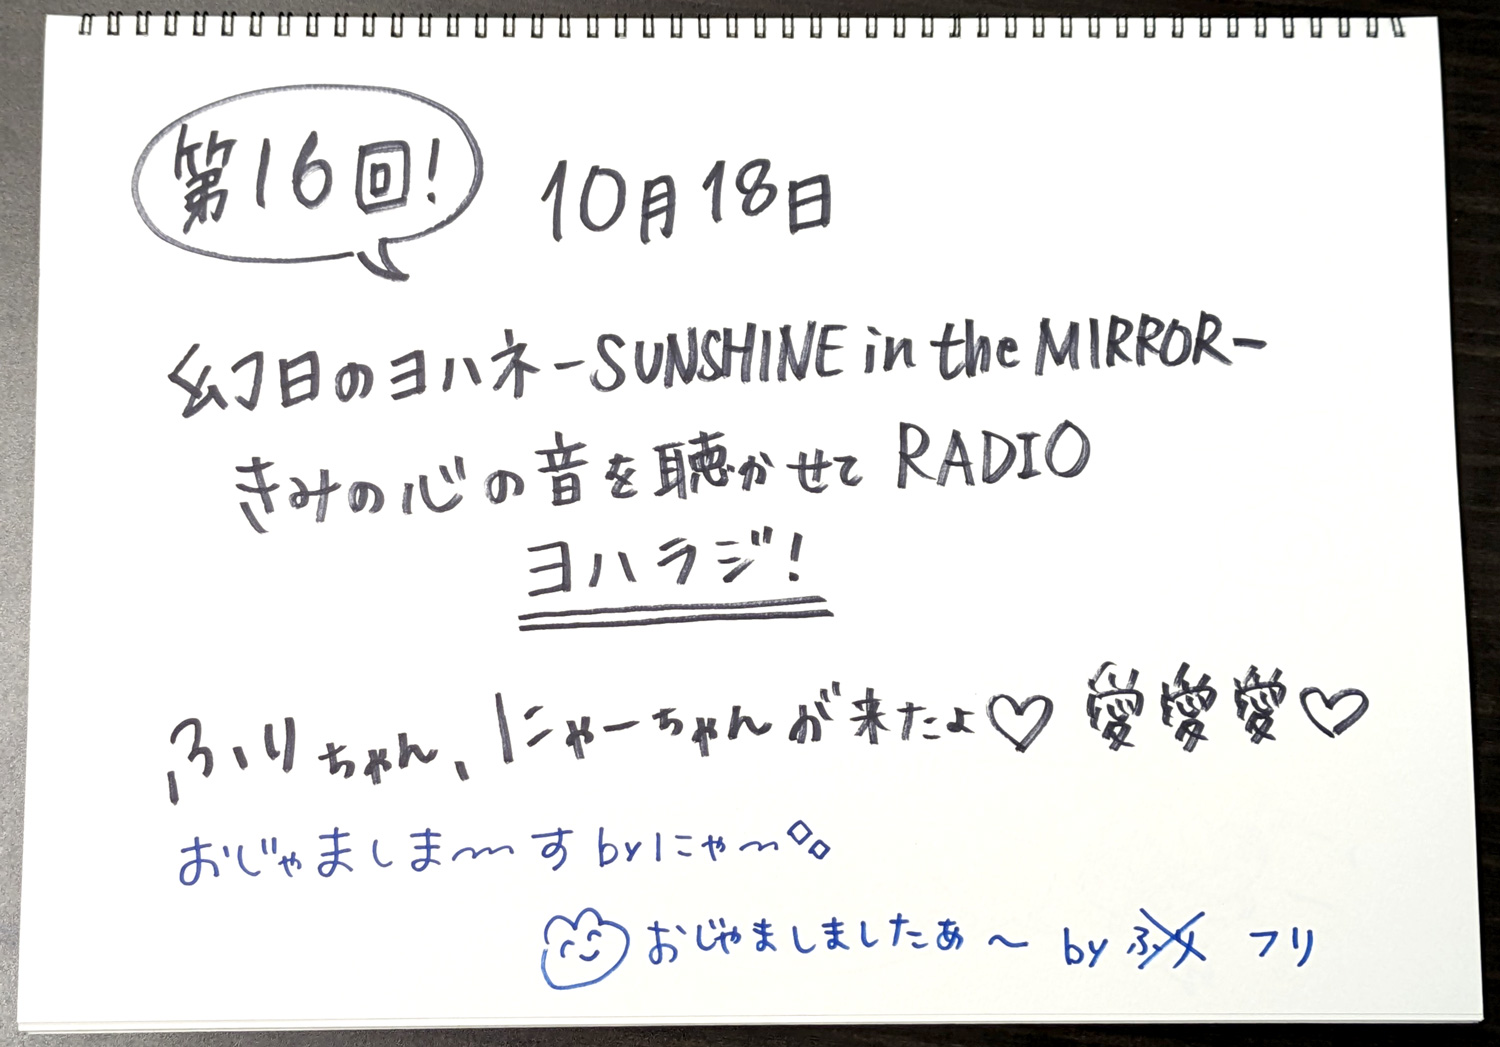 第16回! 10月18日
幻日のヨハネ-SUNSHINE in the MIRROR-
きみの心の音を聴かせて RADIO
ヨハラジ!
ふりちゃん、にゃーちゃんが来たよ♡ 愛愛愛♡
おじゃましま〜〜す by にゃ〜
おじゃましましたぁ〜 by ふり フリ